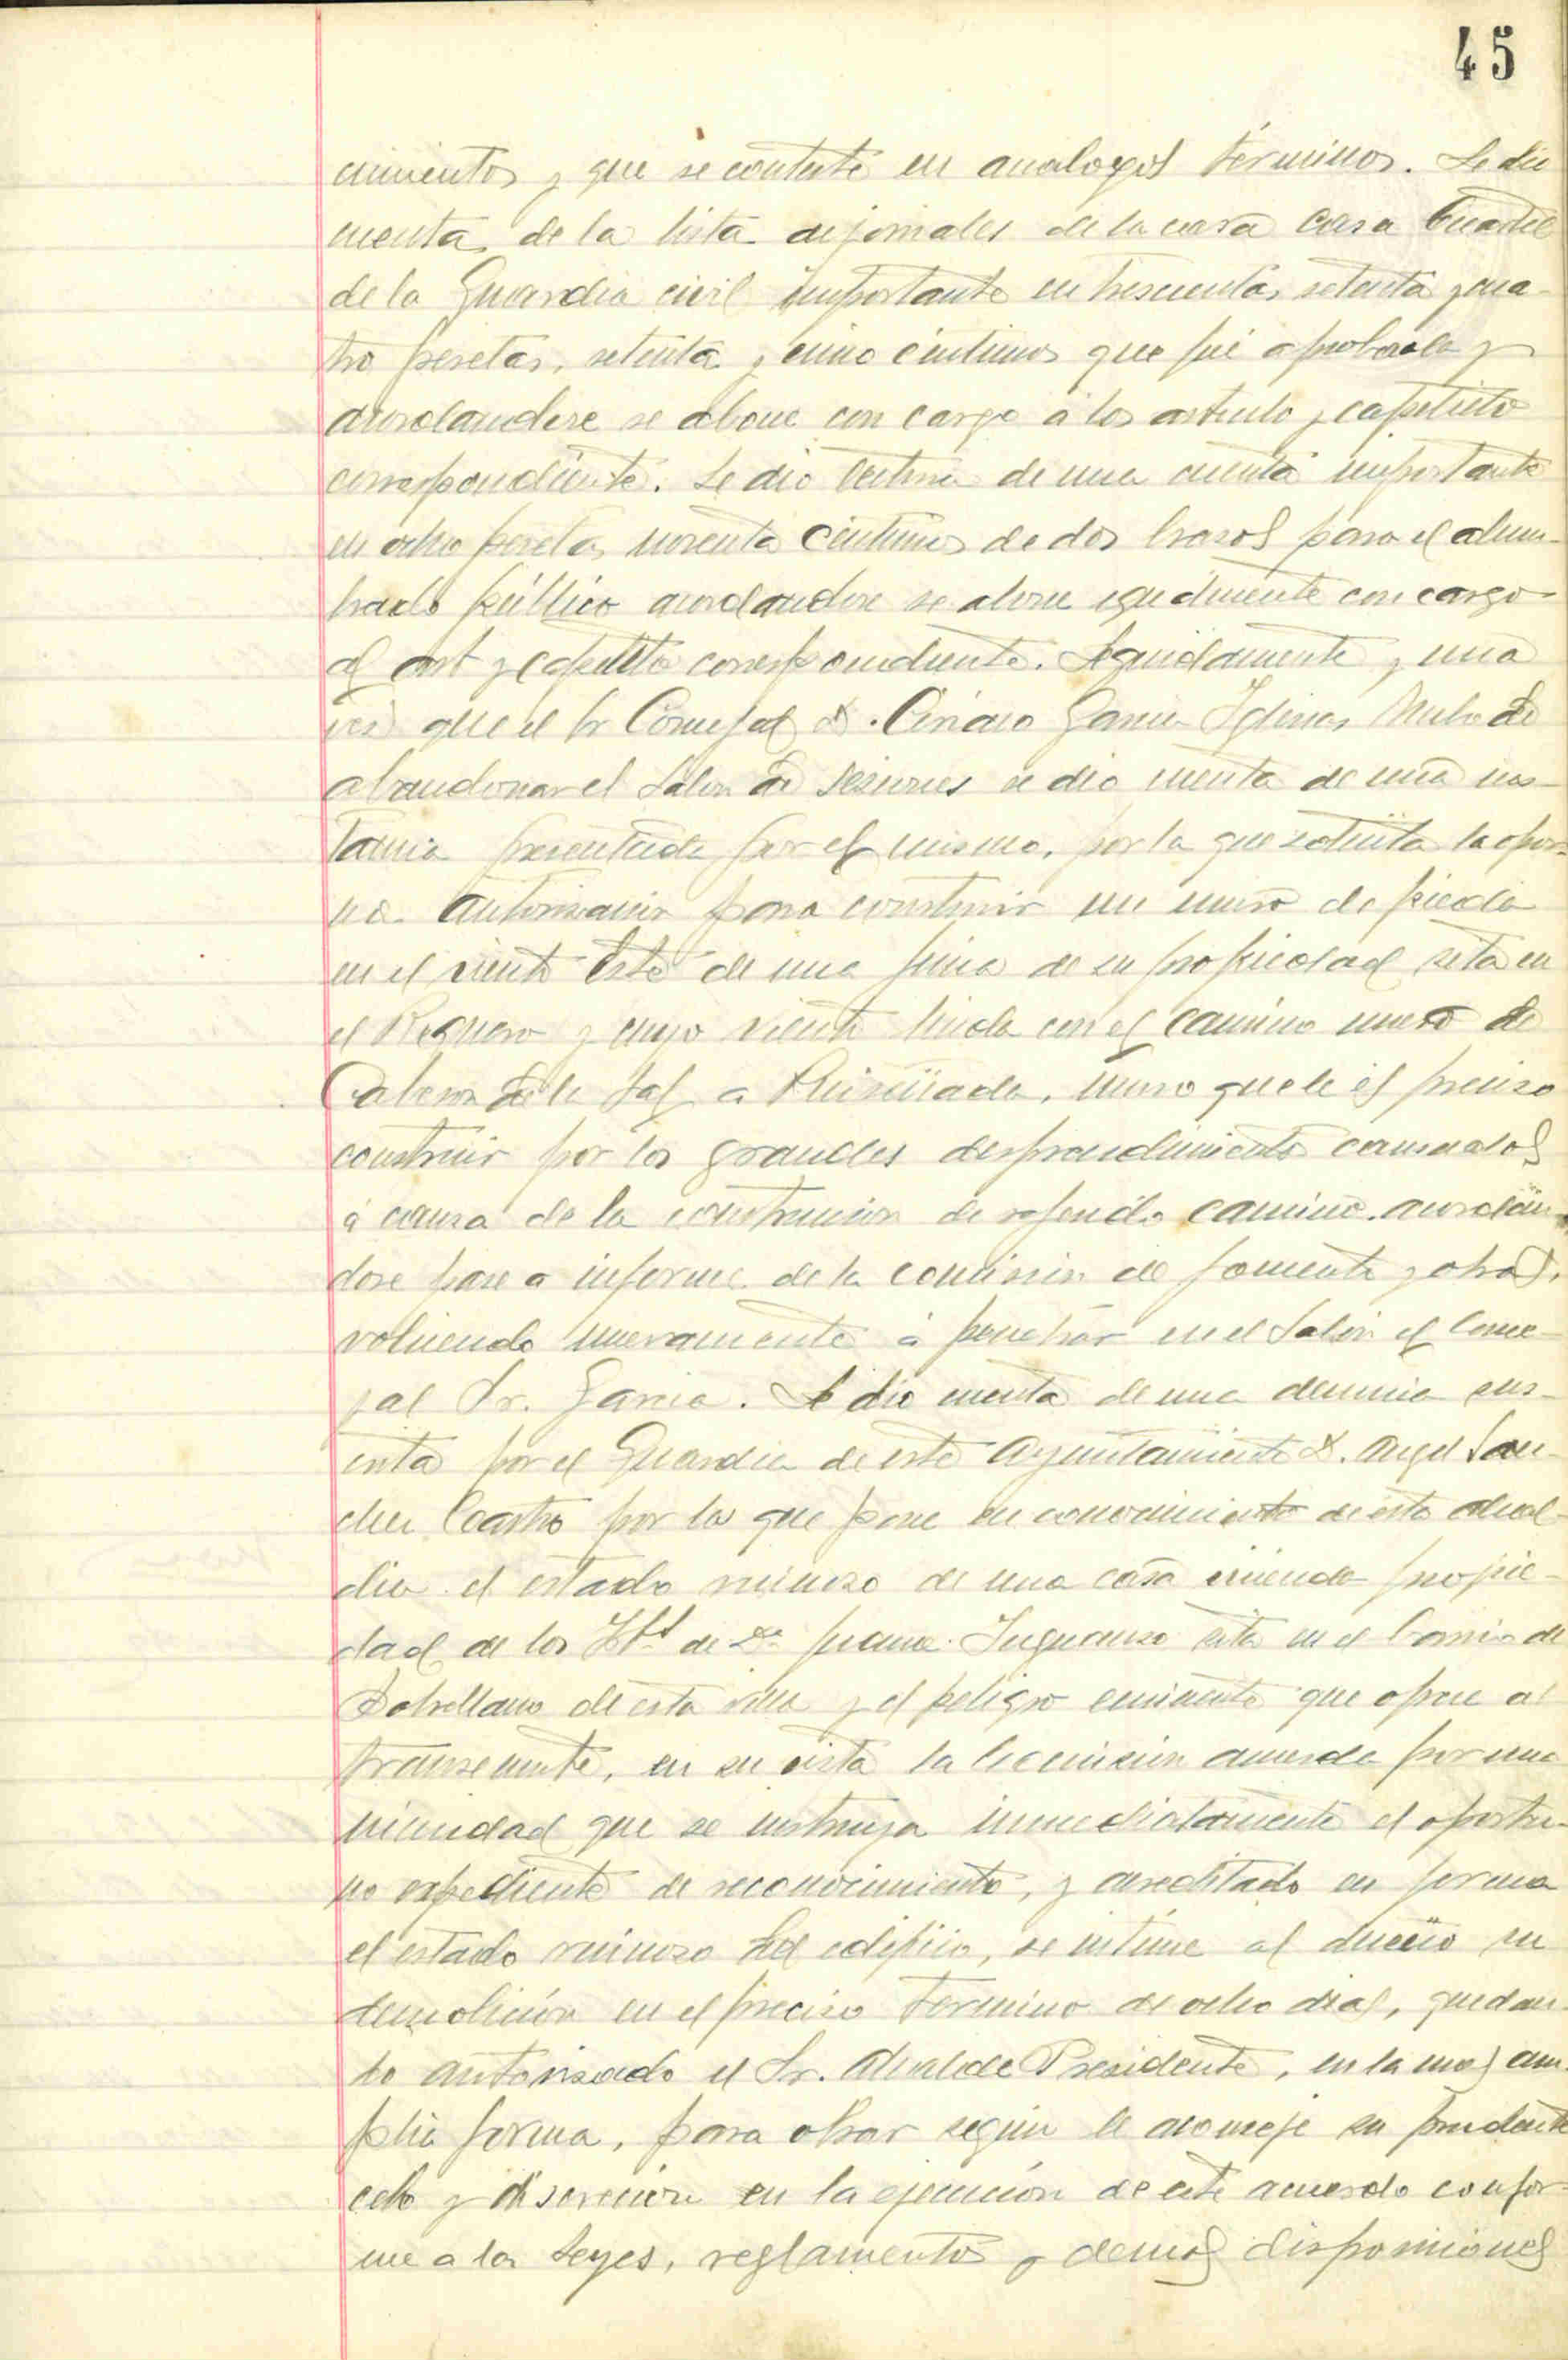 45
cimientos y que se conteste en analogos términos. Se dió
cuenta de la lista de jornales de la casa Casa Cuartel
de la Guardia civil importante en trescientas setenta y cua-
tro pesetas, setenta y cinco céntimos que fué aprobada y
acordandose se abone con cargo á los artículo y capitulo
correspondiente. Se dió lectura de una cuenta importante
en ocho pesetas noventa centimos de dos brasos para el alum-
brado público acordandose se abone igualmente con cargo
al art y capitulo correspondiente. Seguidamente y una
vez que el Sr Concejal D. Ciriaco Garcia Iglesias hubo de
abandonar el Salon de Sesiones se dio cuenta de una ins-
tancia presentada por el mismo, por la que solicita la opor-
na autorizacion para construir un muro de piedra
en el viento Este de una finca de su propiedad sita en
el Reguero y cuyo viento linda con el camino nuevo de
de la Sal a muro que le es preciso
construir por los grandes desprendimientos causados
á causa de la construccion de referido camino. acordán-
dose pase a informe de la comision de fomento y obras,
volviendo nuevamente á penetrar en el Salon el Conce-
jal Sr. Garcia. Se dio cuenta de una denuncia sus-
crita por el Guardia de este Ayuntamiento D. Angel San-
chez Castro por la que pone en conocimiento de esta alcal-
dia el estado ruinoso de una casa vivienda propie-
dad de los Hs. de Da Juana Inguanzo sita en el barrio de
de esta villa y el peligro eminente que ofrece al
transeunte, en su vista la Comision acuerda por una-
nimidad que se instruya inmediatamente el oportu-
no expediente de reconocimiento, y acreditado en forma
el estado ruinoso del edificio, se intime al dueño su
demolición en el preciso termino de ocho dias, quedan-
do autorisado el Sr. Alcalde Presidente, en la mas am-
plia forma, para obrar según le aconseje su prudente
celo y discrecion en la ejecución de este acuerdo confor-
me a las Leyes, reglamentos y demas disposiciones